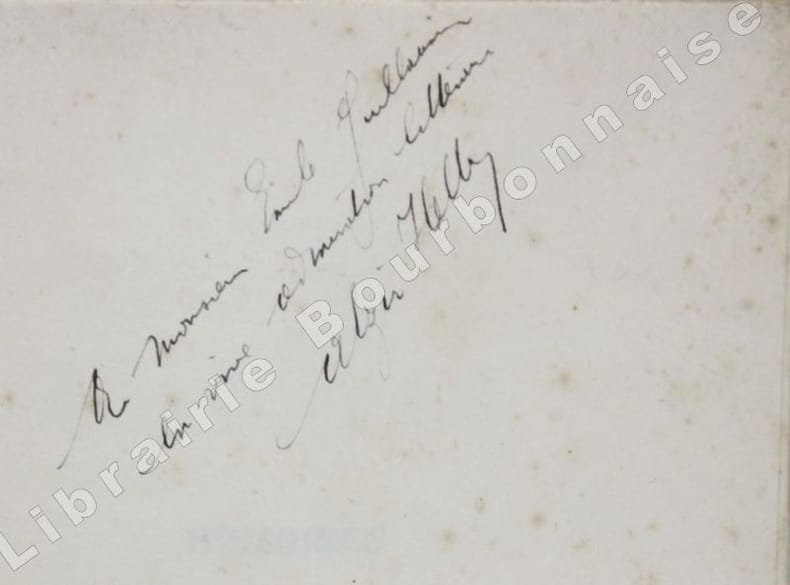 A Monsieur Emile Guillaumin
en vive admiration littéraire
Alzir Hella
Librairie Bourbonnaise